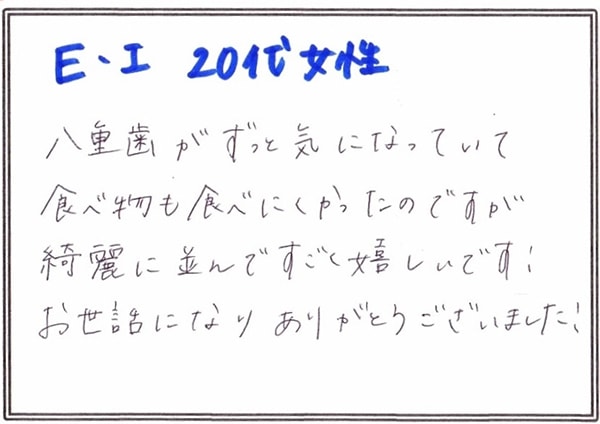 E・I 20代 女性
八重歯がずっと気になっていて
食べ物も食べにくかったのですが
綺麗に並んですごく嬉しいです!
お世話になりありがとうございました!